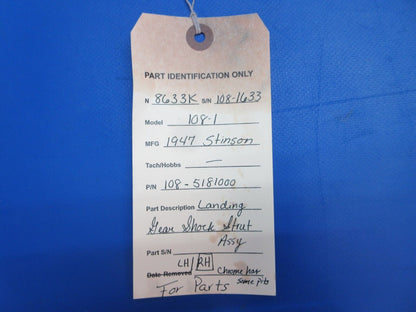 PART IDENTIFICATION ONLY
N 8633K S/N 108-1633
Model 108-1
MFG 1947 Stinson
Tach/Hobbs —
P/N 108-5181000
Part Description Landing
Gear Shock Strut
Assy
Part S/N
LH/RH
Date Removed Chrome has
some pits
For Parts